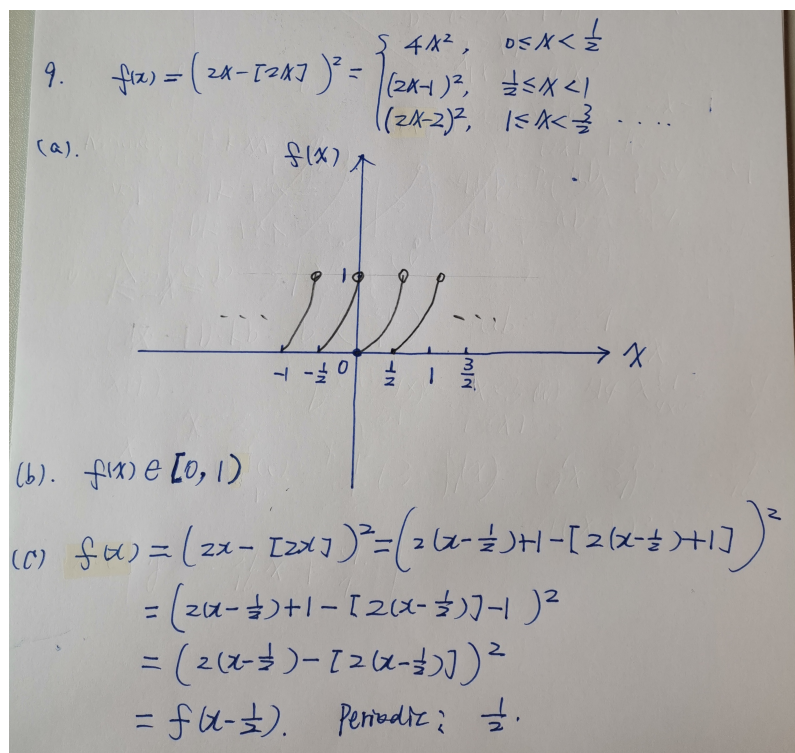 9. f(x) = (2x-[2x])² = { 4x², 0≤x<1/2
(2x-1)², 1/2≤x<1
(2x-2)², 1≤x<3/2 ....
(a).
f(x)
1
... ...
-1 -1/2 0 1/2 1 3/2 x
(b). f(x) ∈ [0, 1)
(c) f(x) = (2x-[2x])² = (2(x-1/2)+1-[2(x-1/2)+1])²
= (2(x-1/2)+1-[2(x-1/2)]-1)²
= (2(x-1/2)-[2(x-1/2)])²
= f(x-1/2). Periodic: 1/2.